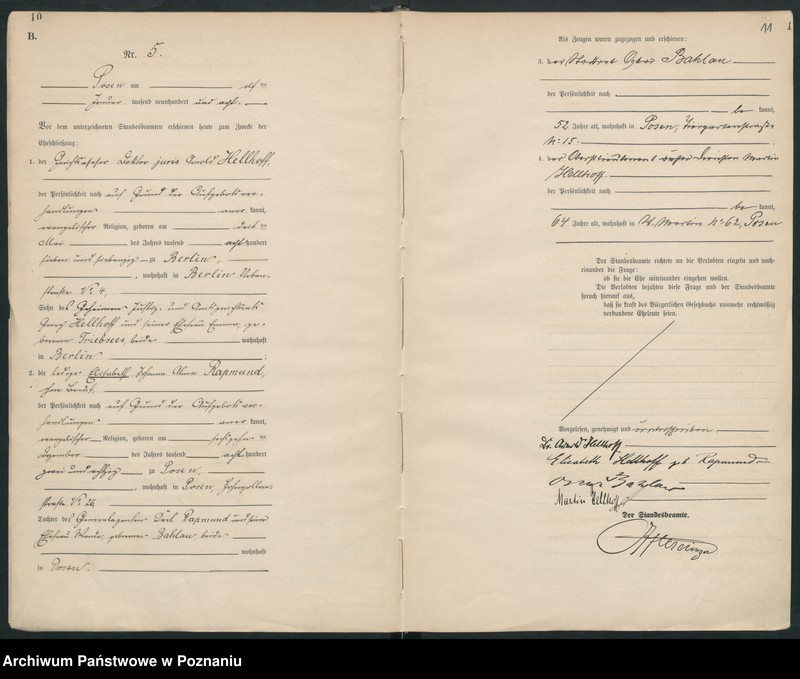 10
B.
Nr. 5.
Posen am elf ten
Januar tausend neunhundert und acht.
Vor dem unterzeichneten Standesbeamten erschienen heute zum Zwecke der
Eheschließung:
1. der Gerichtsassessor Doktor juris Arnold Hellhoff,
der Persönlichkeit nach auf Grund der Aufgebotsver-
handlungen aner kannt,
evangelischer Religion, geboren am dritten
Mai des Jahres tausend acht hundert
sieben und siebenzig zu Berlin,
, wohnhaft in Berlin
straße No 4,
Sohn des Geheimen Justiz- und Amtsgerichtsrats
Georg Hellhoff und seiner Ehefrau Emma, ge-
borenen Triebsees, beide wohnhaft
in Berlin ;
2. die ledige Elisabeth Johanna Rapmund,
ohne Beruf,
der Persönlichkeit nach auf Grund der Aufgebotsver-
handlungen aner kannt,
evangelischer Religion, geboren am sechszehn ten
Dezember des Jahres tausend acht hundert
zwei und achtzig zu Posen,
, wohnhaft in Posen, Hohenzollern-
straße No 26,
Tochter des Generalagenten Rapmund und seiner
Ehefrau geborenen Bahlau beide
wohnhaft
in Posen.
11
Als Zeugen waren zugezogen und erschienen:
3. der Stadtrat Oskar Bahlau
der Persönlichkeit nach
be kannt,
52 Jahre alt, wohnhaft in Posen, Tiergartenstraße
No 15. ;
4. der Oberstleutnant außer Diensten Martin
Hellhoff.
der Persönlichkeit nach
be kannt,
64 Jahre alt, wohnhaft in St. Martin No 62, Posen
Der Standesbeamte richtete an die Verlobten einzeln und nach-
einander die Frage:
ob sie die Ehe miteinander eingehen wollen.
Die Verlobten bejahten diese Frage und der Standesbeamte
sprach hierauf aus,
daß sie kraft des Bürgerlichen Gesetzbuchs nunmehr rechtmäßig
verbundene Eheleute seien.
Vorgelesen, genehmigt und unterschrieben.
Dr. Arnold Hellhoff
Elisabeth Hellhoff geb Rapmund
Oskar Bahlau
Martin Hellhoff
Der Standesbeamte.
Archiwum Państwowe w Poznaniu